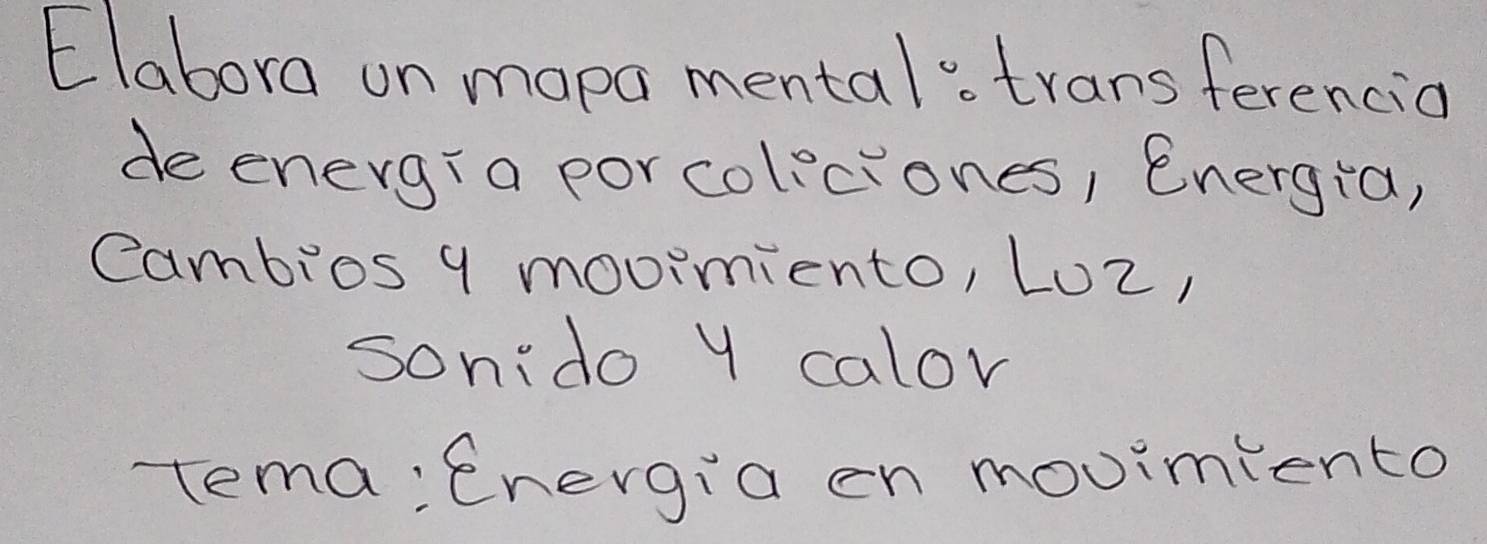 Elabora un mapa mental: transferencia
de energía por coliciones, Energía,
Cambios y movimiento, Luz,
sonido y calor
Tema: Energía en movimiento